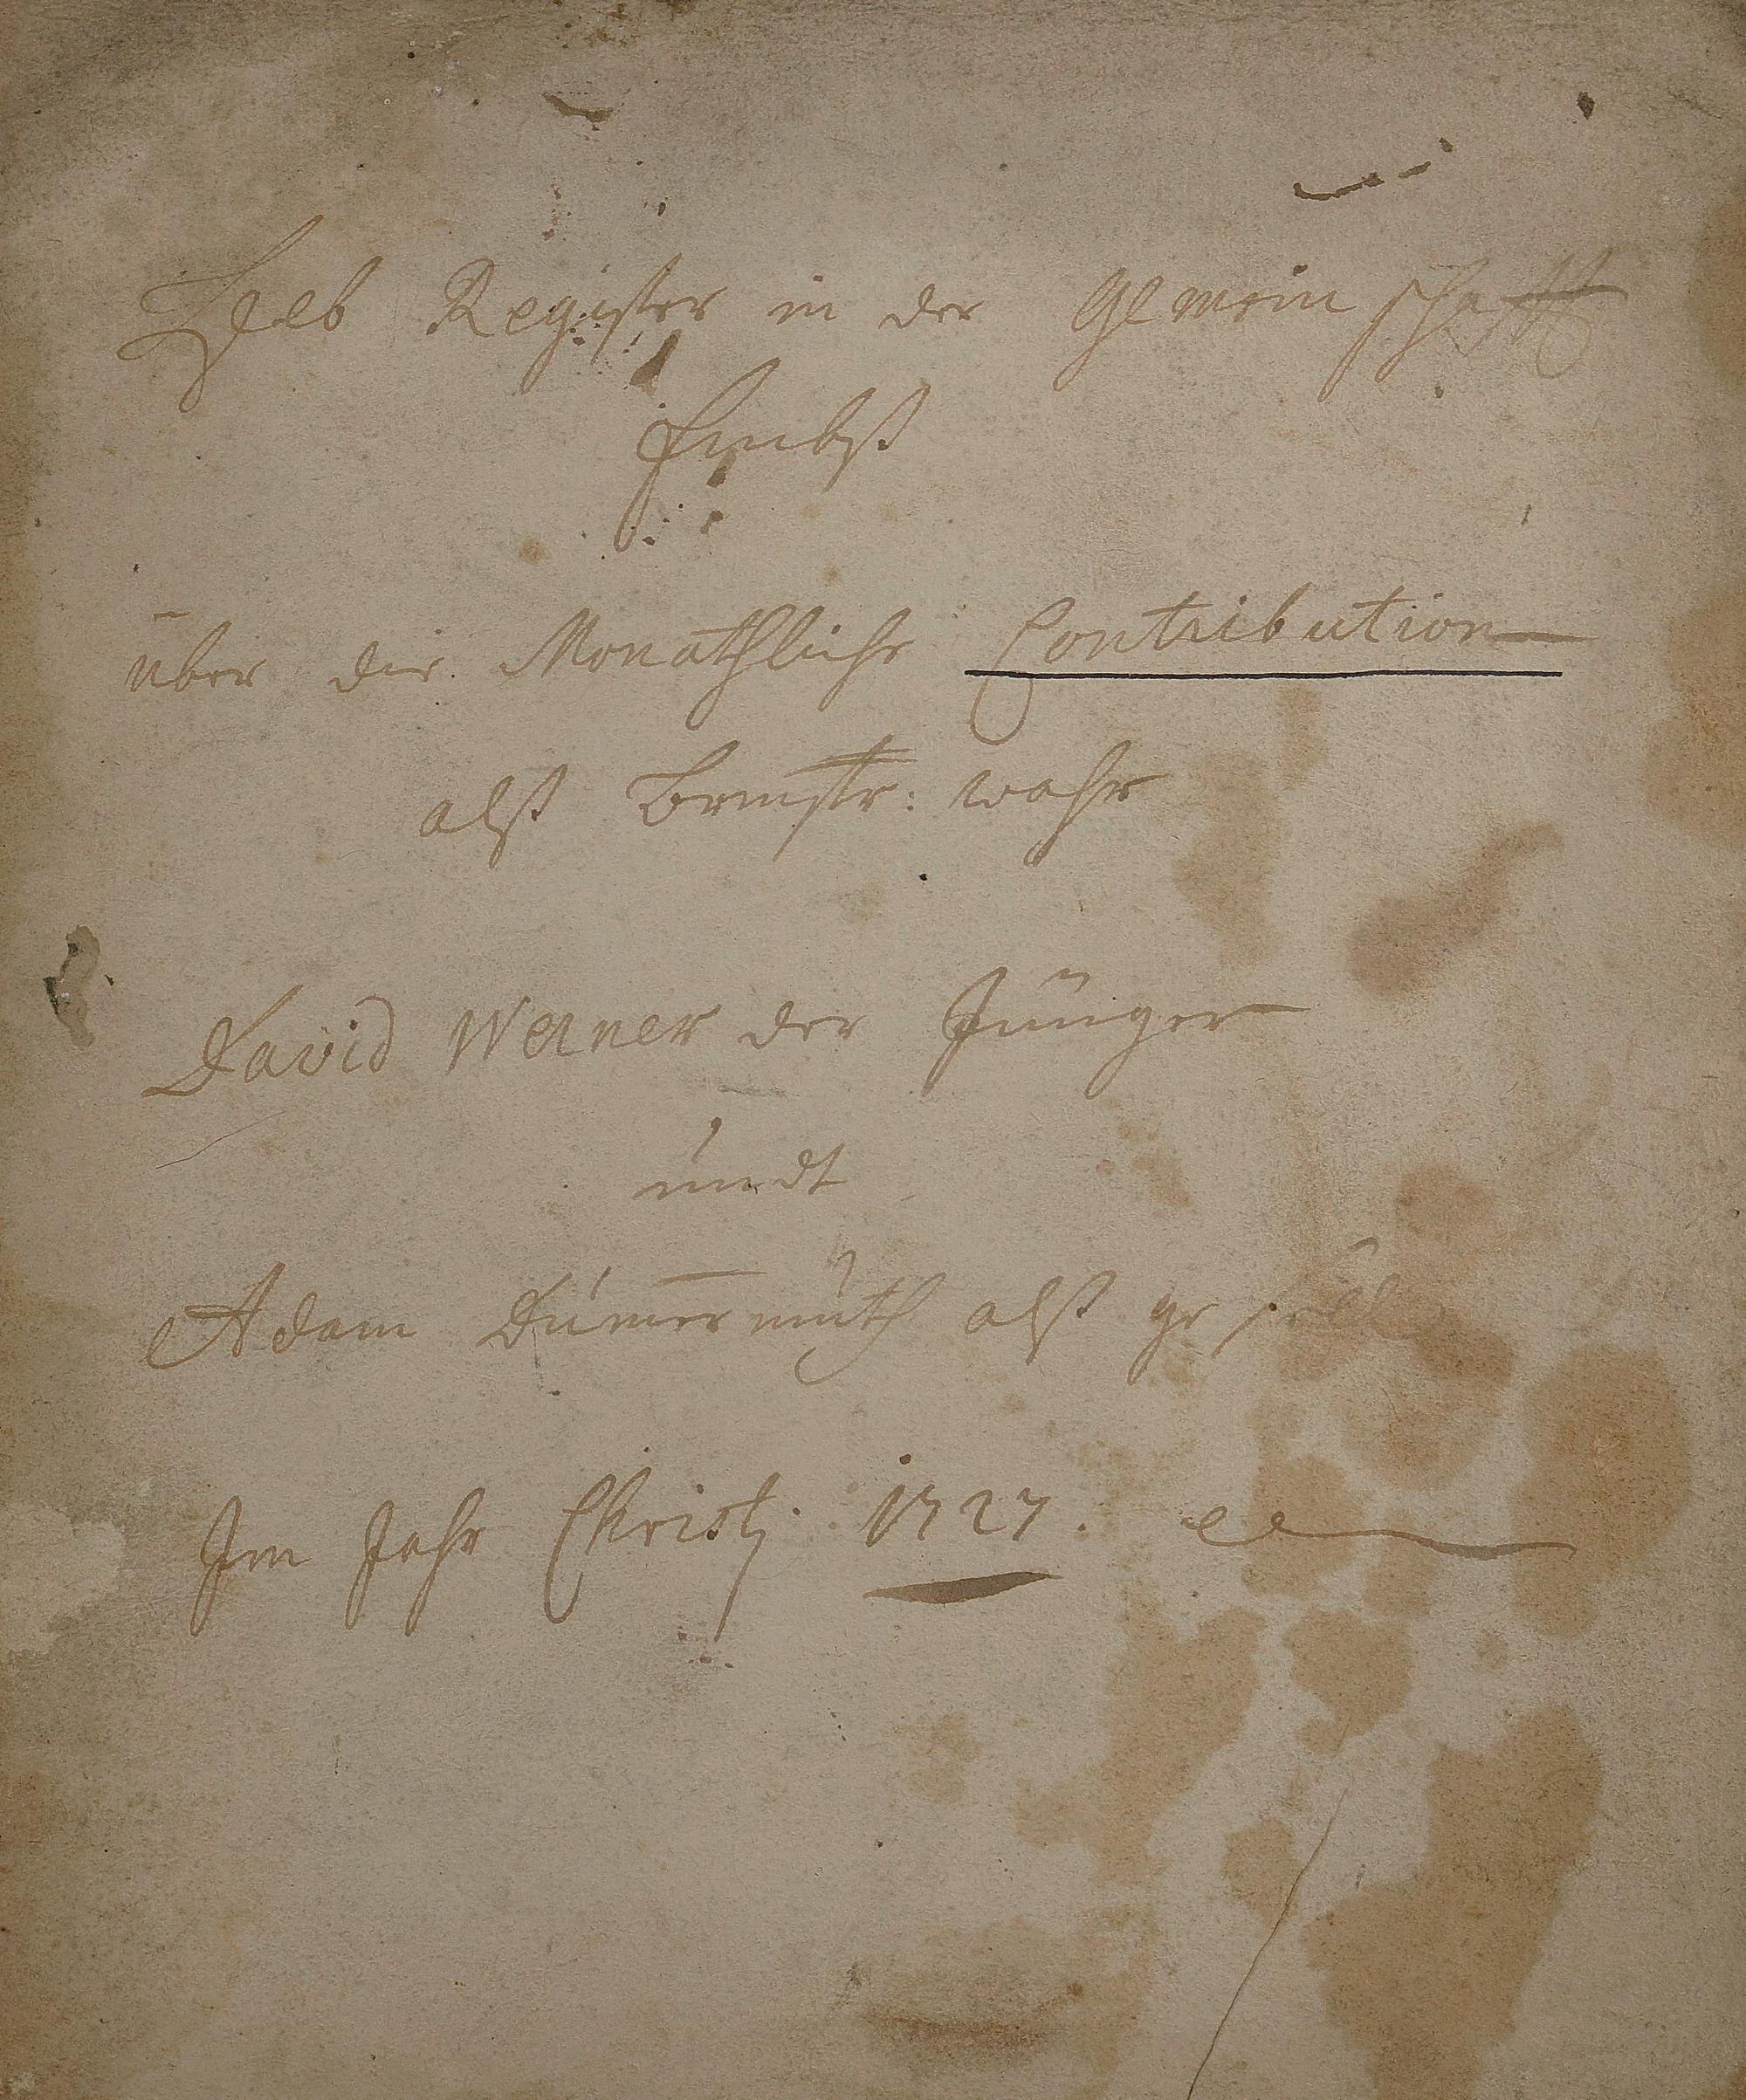 Heeb Register in der Gemeinschafft
Embß
über die Monathliche Contribution
alß Brmstr: wahr
David Werner der Jünger
undt
Adam Dümermuth alß geselle
Im Jahr Christj 1727.